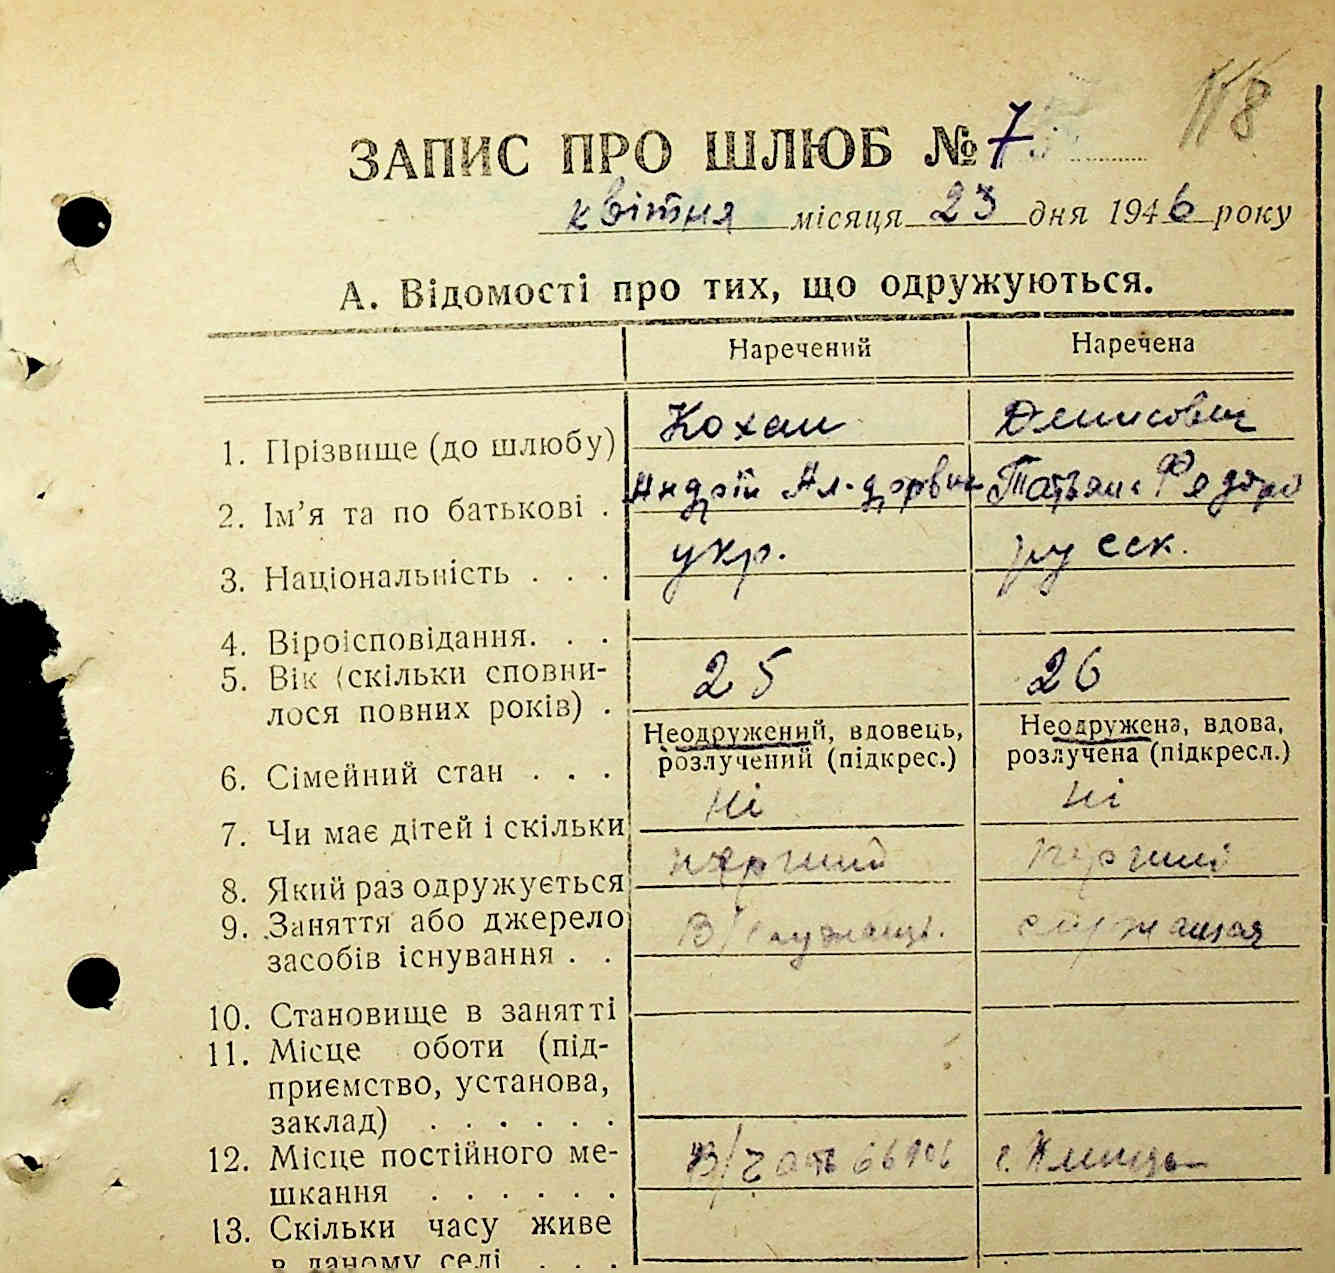 118
ЗАПИС ПРО ШЛЮБ № 7
квітня місяця 23 дня 1946 року
А. Відомості про тих, що одружуються.
Наречений Наречена
1. Прізвище (до шлюбу) Кохан Денисович
2. Ім’я та по батькові . Андрій Татьяна Федоро
3. Національність . . . укр. русск.
4. Віроісповідання. . .
5. Вік (скільки сповни-
лося повних років) . 25 26
6. Сімейний стан . . . Неодружений, вдовець, Неодружена, вдова,
розлучений (підкрес.) розлучена (підкресл.)
7. Чи має дітей і скільки Ні Ні
8. Який раз одружується перший перший
9. Заняття або джерело
засобів існування . . В/служащ. служащая
10. Становище в занятті
11. Місце оботи (під-
приємство, установа,
заклад) . . . . . .
12. Місце постійного ме-
шкання . . . . . . В/часть г.
13. Скільки часу живе
в даному селі . . .